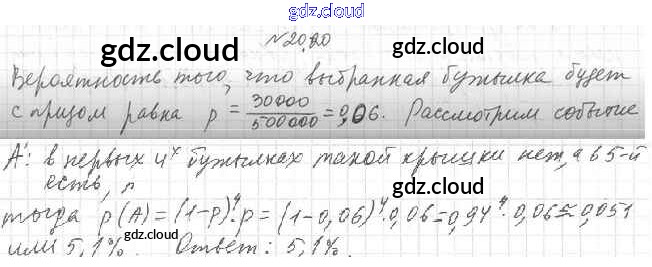 gdz.cloud
№20.20
gdz.cloud gdz.cloud
Вероятность того, что выбранная бутылка будет
с призом равна p = 30000/500000 = 0,06. Рассмотрим событие
A: в первых 4х бутылках такой крышки нет, а в 5-й
есть,
тогда p(A) = (1-p)⁴·p = (1-0,06)⁴·0,06 = 0,94⁴·0,06 ≈ 0,051
или 5,1%. Ответ: 5,1%.
gdz.cloud gdz.cloud